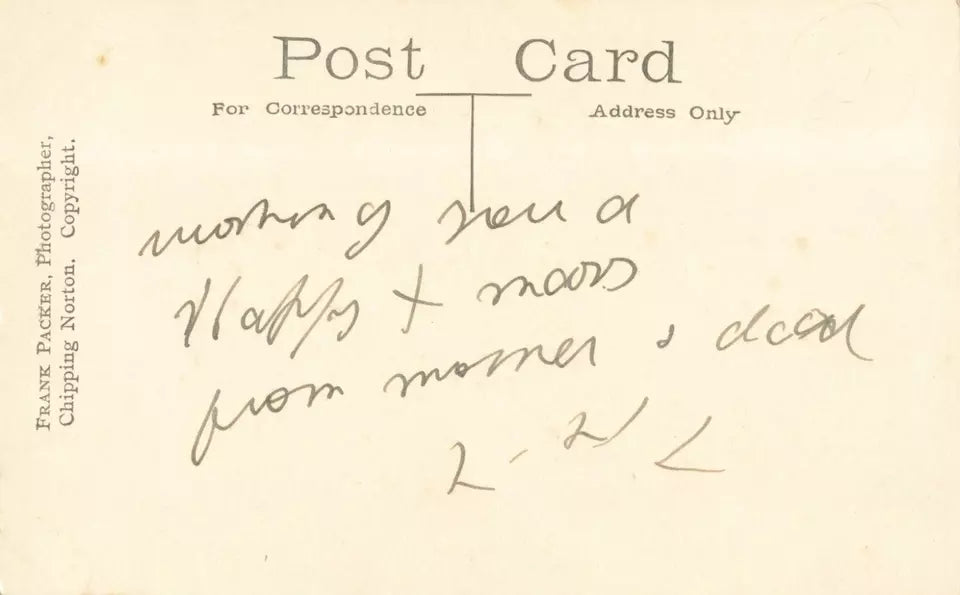 Post Card
For Correspondence
Address Only
FRANK PACKER, Photographer,
Chipping Norton. Copyright.
you a
Happy X mas
from mother & dad